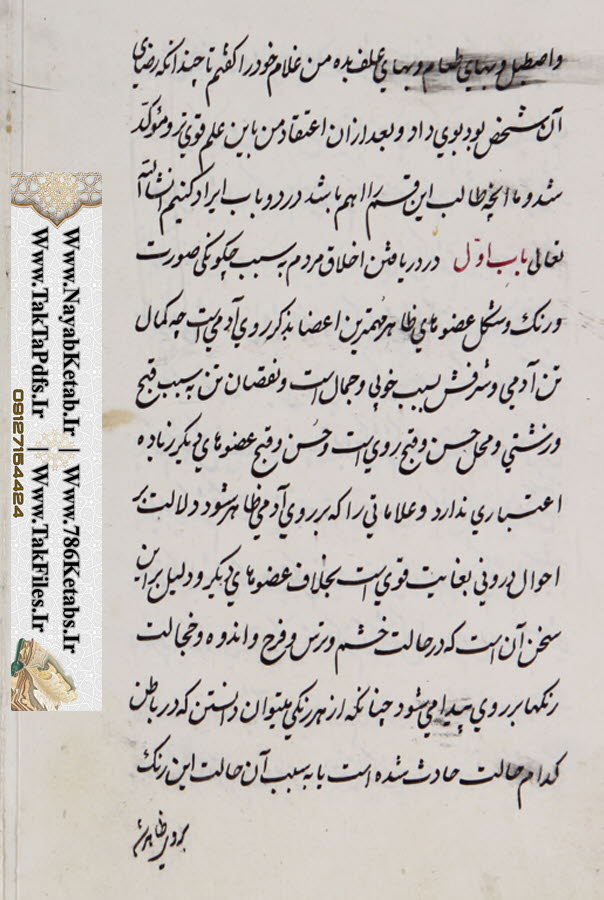 واصطبل و بهای طعام و بهای علف بده من غلام خود را گفتم تا چندانکه رضای
آن شخص بود بوی داد و بعد ازان اعتقاد من باین علم قوی تر و مؤکد
شد و ما آنچه طالب این قسم را اهم باشد در دو باب ایراد کنیم انشاالله
تعالی باب اول در دریافتن اخلاق مردم به سبب چگونگی صورت
و رنگ و شکل عضوهای ظاهر مهمترین اعضا بذکر روی آدمی است چه کمال
تن آدمی و شرفش بسبب خوبی و جمال است و نقصان تن به سبب قبح
و زشتی و محل حسن و قبح روی است و حسن و قبح عضوهای دیگر زیاده
اعتباری ندارد و علاماتی را که بر روی آدمی ظاهر شود دلالت بر
احوال درونی بغایت قوی است بخلاف عضوهای دیگر و دلیل براین
سخن آن است که در حالت خشم و ترس و فرح و اندوه و خجالت
رنگها بر روی پیدا می شود چنانکه از هر رنگی میتوان دانستن که در باطن
کدام حالت حادث شده است یا به سبب آن حالت این رنگ
بر روی ظاهر
Www.NayabKetab.Ir | Www.786Ketabs.Ir
Www.TakTaPdfs.Ir | Www.TakFiles.Ir
09127154424